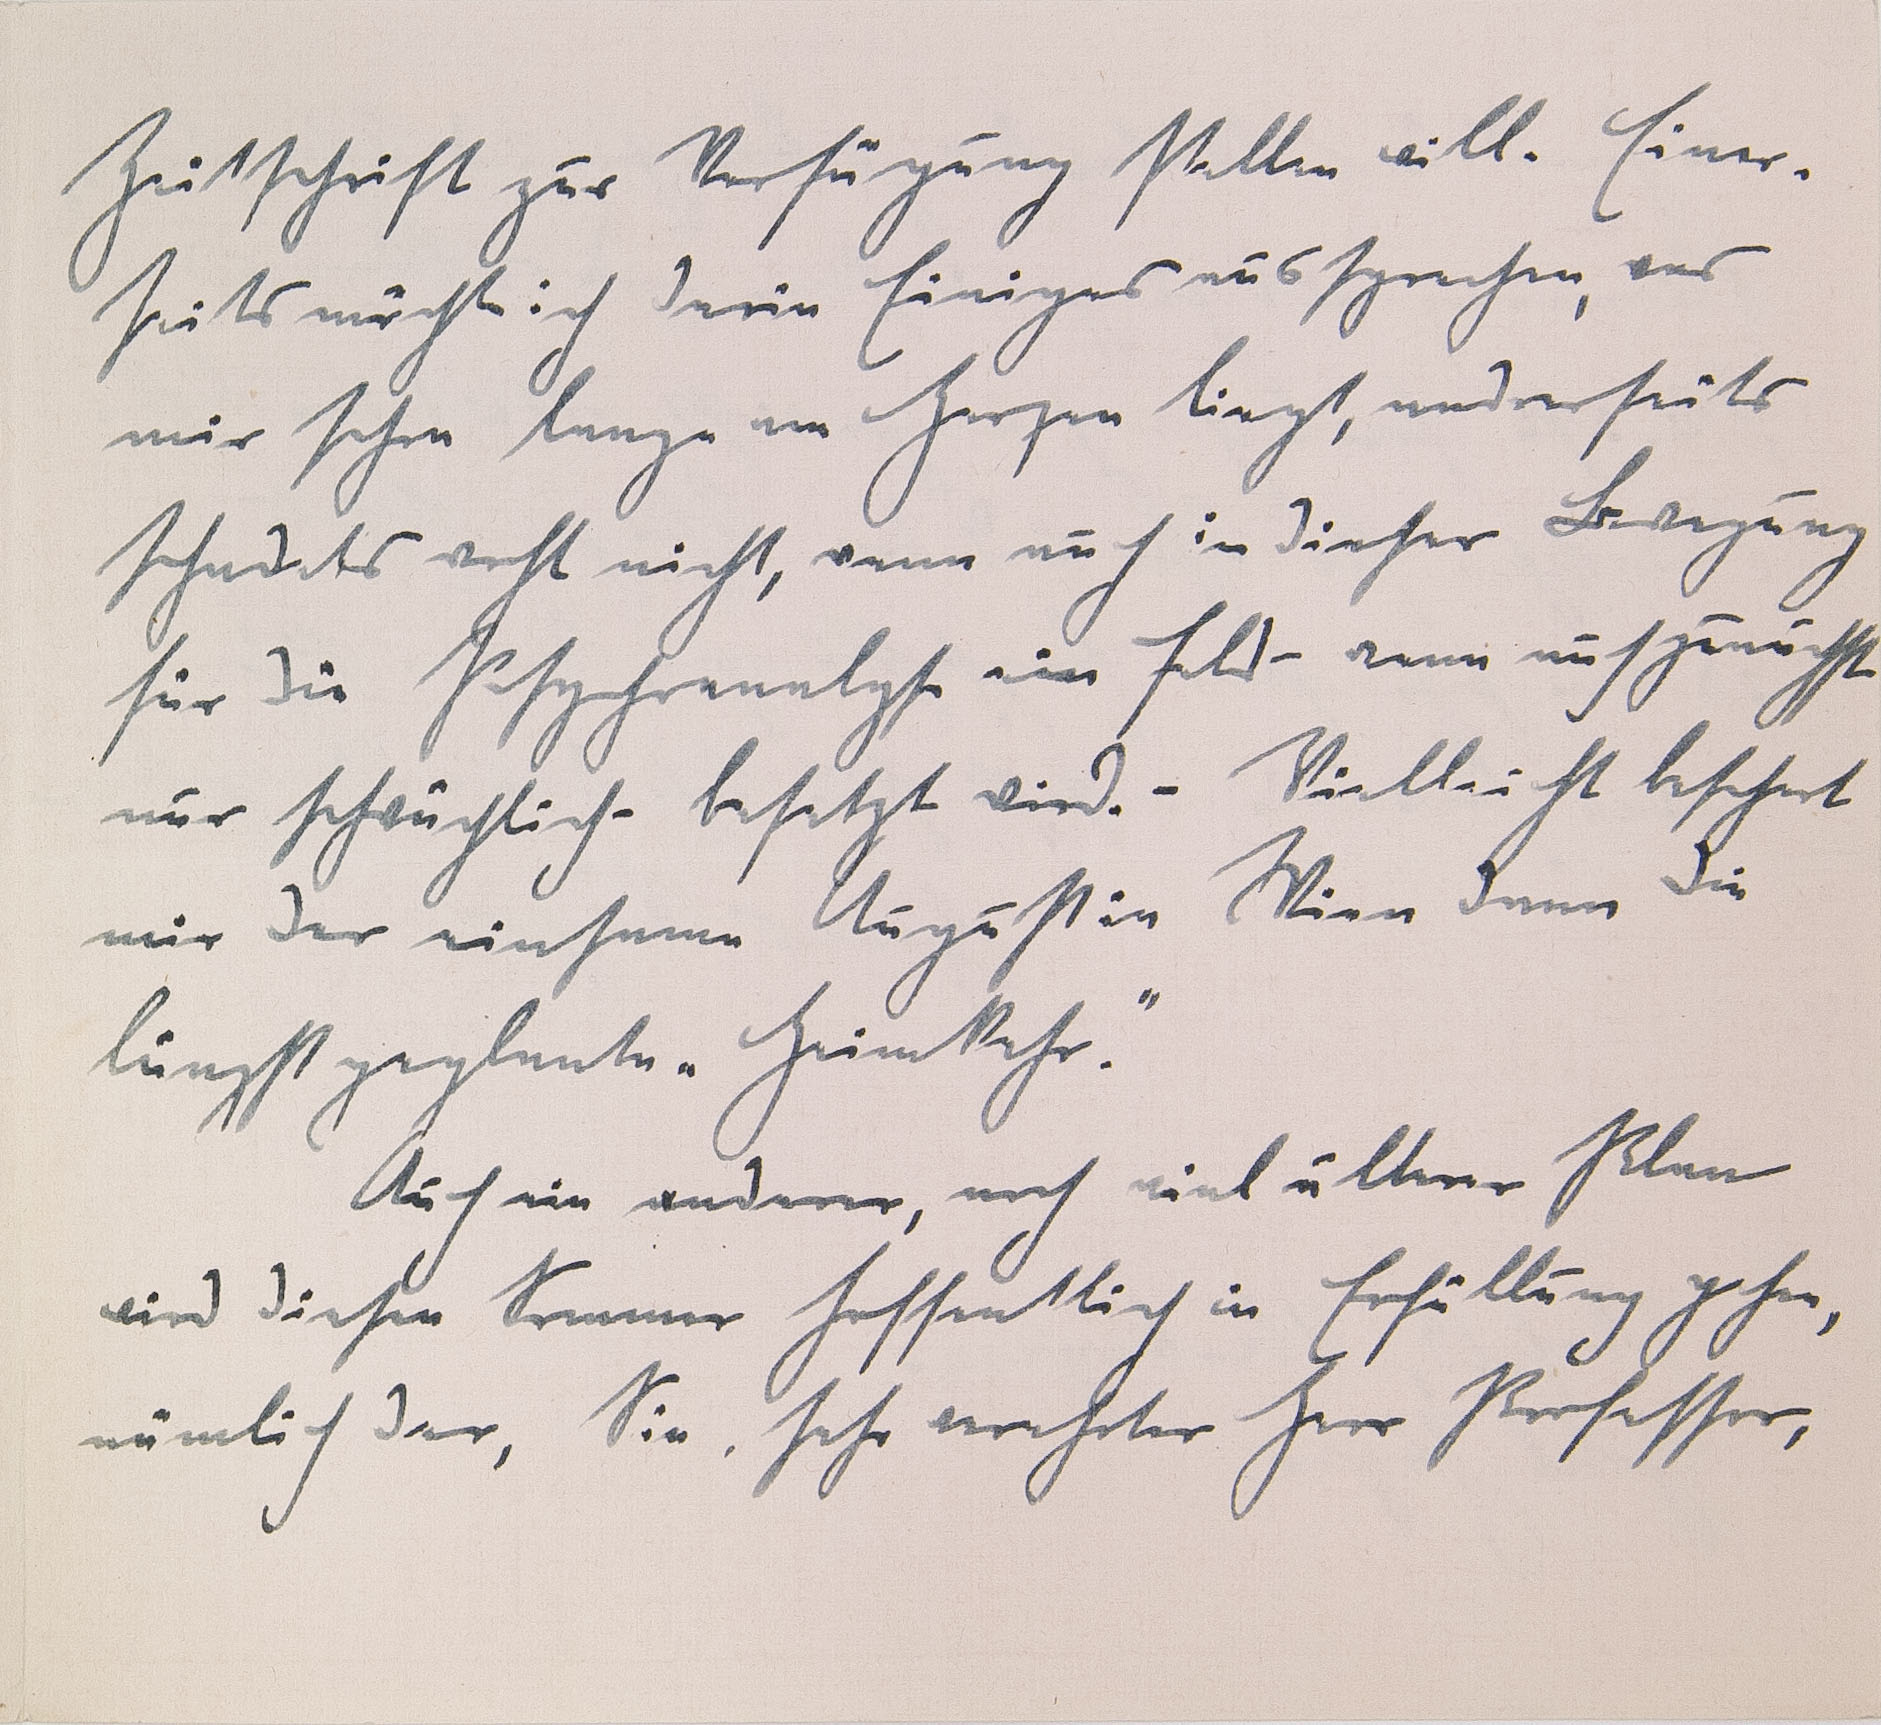 Zeitschrift zur Verfügung stellen will. Einer-
seits möcht ich darin Einiges aussprechen, was
mir schon lange am Herzen liegt, andrerseits
schadets wohl nicht, wenn auch in dieser Bewegung
für die Psychoanalyse ein Feld - wenn auch zunächst
nur schwächlich - besetzt wird. - Vielleicht beschert
mir der einsame August in Wien dann die
längst geplante "Heimkehr."
Auch ein anderer, noch viel älterer Plan
wird diesen Sommer hoffentlich in Erfüllung gehen,
nämlich der, Sie, sehr verehrter Herr Professor,